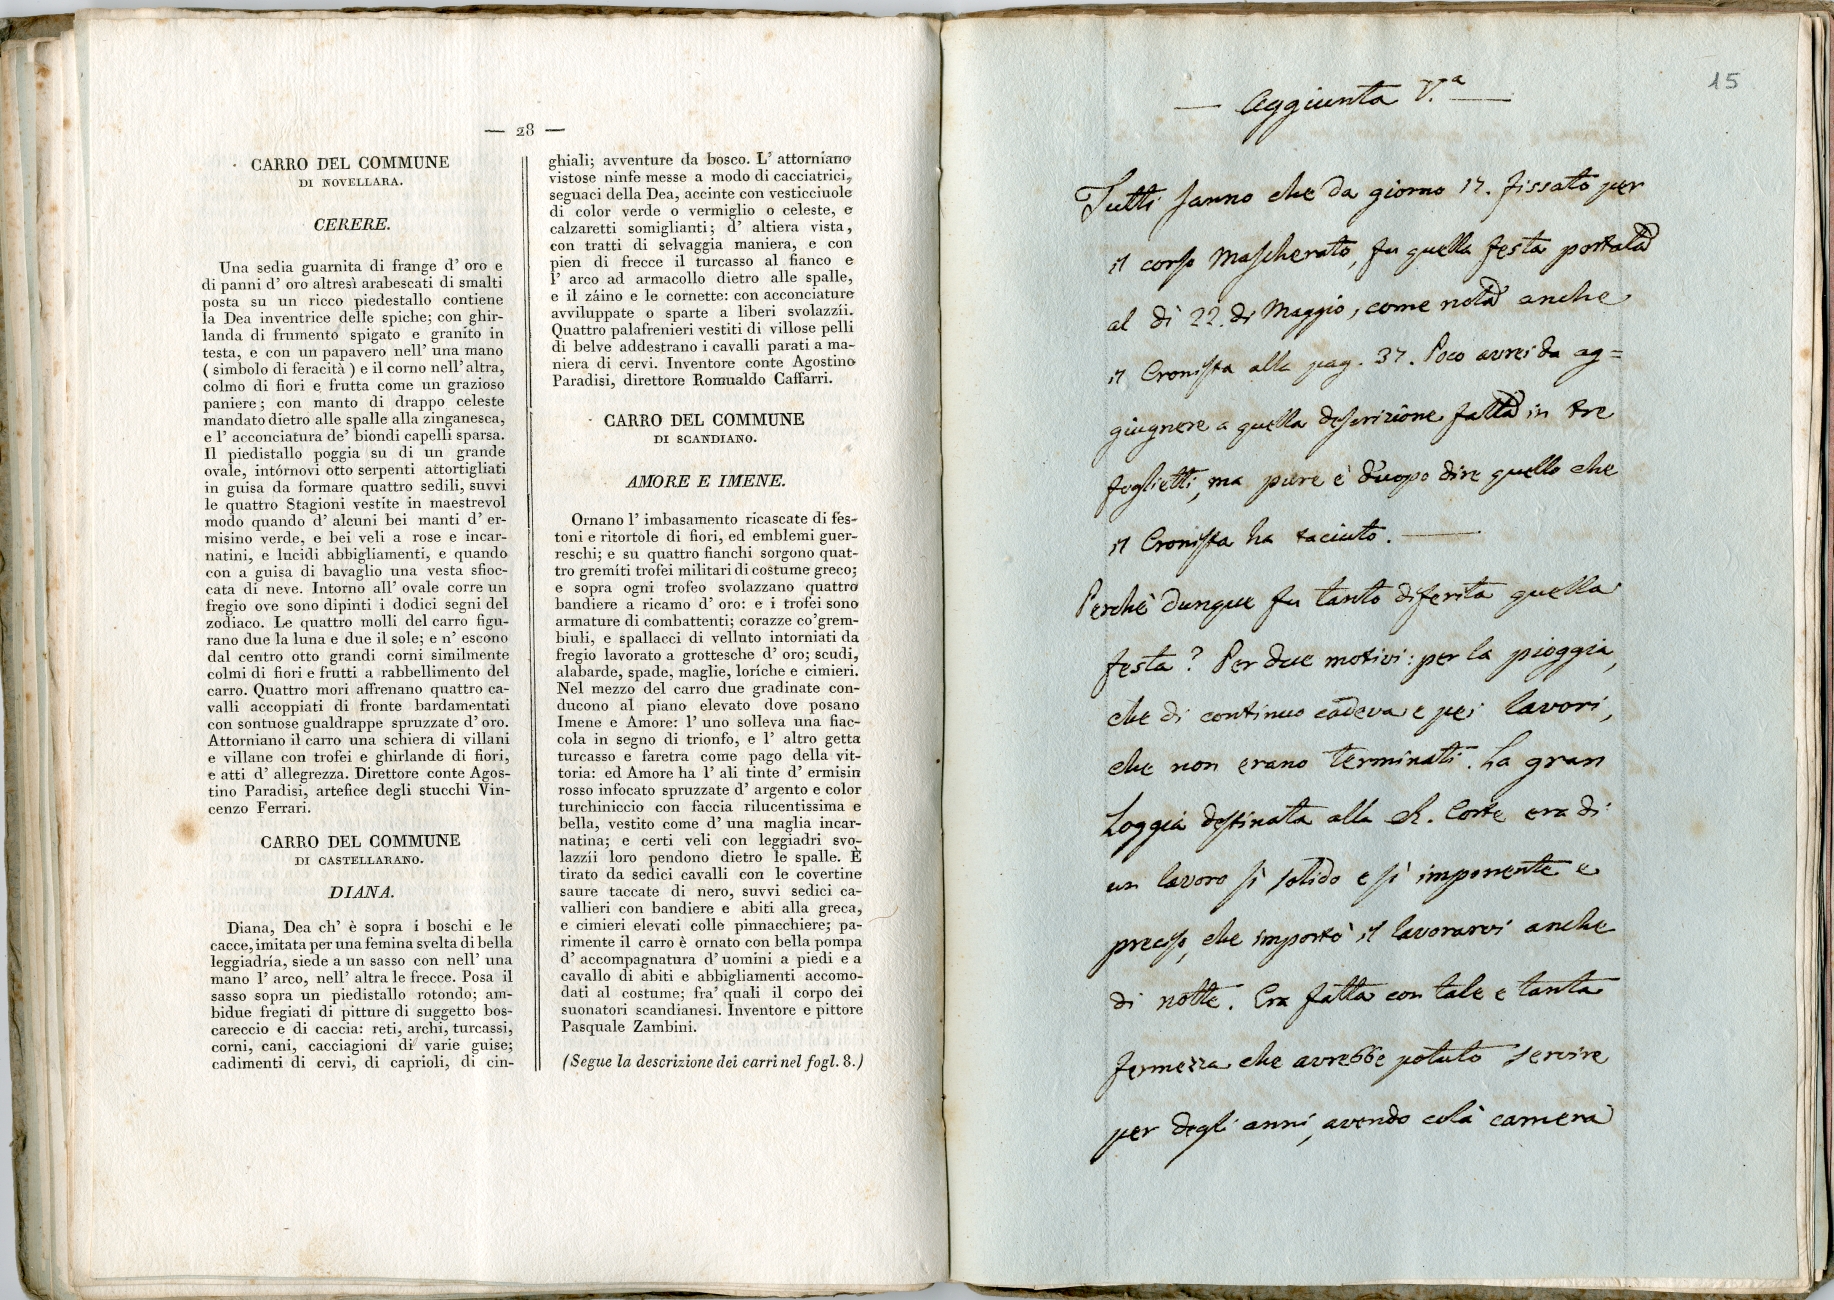 — 28 —
CARRO DEL COMMUNE
DI NOVELLARA.
CERERE.
Una sedia guarnita di frange d' oro e
di panni d' oro altresì arabescati di smalti
posta su un ricco piedestallo contiene
la Dea inventrice delle spiche; con ghir-
landa di frumento spigato e granito in
testa, e con un papavero nell' una mano
( simbolo di feracità ) e il corno nell' altra,
colmo di fiori e frutta come un grazioso
paniere; con manto di drappo celeste
mandato dietro alle spalle alla zinganesca,
e l' acconciatura de' biondi capelli sparsa.
Il piedistallo poggia su di un grande
ovale, intórnovi otto serpenti attortigliati
in guisa da formare quattro sedili, suvvi
le quattro Stagioni vestite in maestrevol
modo quando d' alcuni bei manti d' er-
misino verde, e bei veli a rose e incar-
natini, e lucidi abbigliamenti, e quando
con a guisa di bavaglio una vesta sfioc-
cata di neve. Intorno all' ovale corre un
fregio ove sono dipinti i dodici segni del
zodiaco. Le quattro molli del carro figu-
rano due la luna e due il sole; e n' escono
dal centro otto grandi corni similmente
colmi di fiori e frutti a rabbellimento del
carro. Quattro mori affrenano quattro ca-
valli accoppiati di fronte bardamentati
con sontuose gualdrappe spruzzate d' oro.
Attorniano il carro una schiera di villani
e villane con trofei e ghirlande di fiori,
e atti d' allegrezza. Direttore conte Agos-
tino Paradisi, artefice degli stucchi Vin-
cenzo Ferrari.
CARRO DEL COMMUNE
DI CASTELLARANO.
DIANA.
Diana, Dea ch' è sopra i boschi e le
cacce, imitata per una femina svelta di bella
leggiadría, siede a un sasso con nell' una
mano l' arco, nell' altra le frecce. Posa il
sasso sopra un piedistallo rotondo; am-
bidue fregiati di pitture di suggetto bos-
careccio e di caccia: reti, archi, turcassi,
corni, cani, cacciagioni di varie guise;
cadimenti di cervi, di caprioli, di cin-
ghiali; avventure da bosco. L' attorníano
vistose ninfe messe a modo di cacciatrici,
seguaci della Dea, accinte con vesticciuole
di color verde o vermiglio o celeste, e
calzaretti somiglianti; d' altiera vista,
con tratti di selvaggia maniera, e con
pien di frecce il turcasso al fianco e
l' arco ad armacollo dietro alle spalle,
e il záino e le cornette: con acconciature
avviluppate o sparte a liberi svolazzíi.
Quattro palafrenieri vestiti di villose pelli
di belve addestrano i cavalli parati a ma-
niera di cervi. Inventore conte Agostino
Paradisi, direttore Romualdo Caffarri.
CARRO DEL COMMUNE
DI SCANDIANO.
AMORE E IMENE.
Ornano l' imbasamento ricascate di fes-
toni e ritortole di fiori, ed emblemi guer-
reschi; e su quattro fianchi sorgono quat-
tro gremíti trofei militari di costume greco;
e sopra ogni trofeo svolazzano quattro
bandiere a ricamo d' oro: e i trofei sono
armature di combattenti; corazze co'grem-
biuli, e spallacci di velluto intorniati da
fregio lavorato a grottesche d' oro; scudi,
alabarde, spade, maglie, loríche e cimieri.
Nel mezzo del carro due gradinate con-
ducono al piano elevato dove posano
Imene e Amore: l' uno solleva una fiac-
cola in segno di trionfo, e l' altro getta
turcasso e faretra come pago della vit-
toria: ed Amore ha l' ali tinte d' ermisin
rosso infocato spruzzate d' argento e color
turchiniccio con faccia rilucentissima e
bella, vestito come d' una maglia incar-
natina; e certi veli con leggiadri svo-
lazzíi loro pendono dietro le spalle. È
tirato da sedici cavalli con le covertine
saure taccate di nero, suvvi sedici ca-
vallieri con bandiere e abiti alla greca,
e cimieri elevati colle pinnacchiere; pa-
rimente il carro è ornato con bella pompa
d' accompagnatura d' uomini a piedi e a
cavallo di abiti e abbigliamenti accomo-
dati al costume; fra' quali il corpo dei
suonatori scandianesi. Inventore e pittore
Pasquale Zambini.
(Segue la descrizione dei carri nel fogl. 8.)
15
— Aggiunta V.a —
Tutti sanno che da giorno 17. fissato per
il corso Mascherato, fu quella festa portata
al dì 22. di Maggio, come nota anche
il Cronista alla pag. 37. Poco avrei da ag=
giugnere a quella descrizione fatta in tre
foglietti, ma pure è d'uopo dire quello che
il Cronista ha taciuto. —
Perchè dunque fu tanto diferita quella
festa? Per due motivi: per la pioggia,
che di continuo cadeva e pei lavori,
che non erano terminati. La gran
Loggia destinata alla R. Corte era di
un lavoro sì solido e sì imponente e
preciso, che importò il lavorarvi anche
di notte. Era fatta con tale e tanta
fermezza che avrebbe potuto servire
per degli anni, avendo colà camera